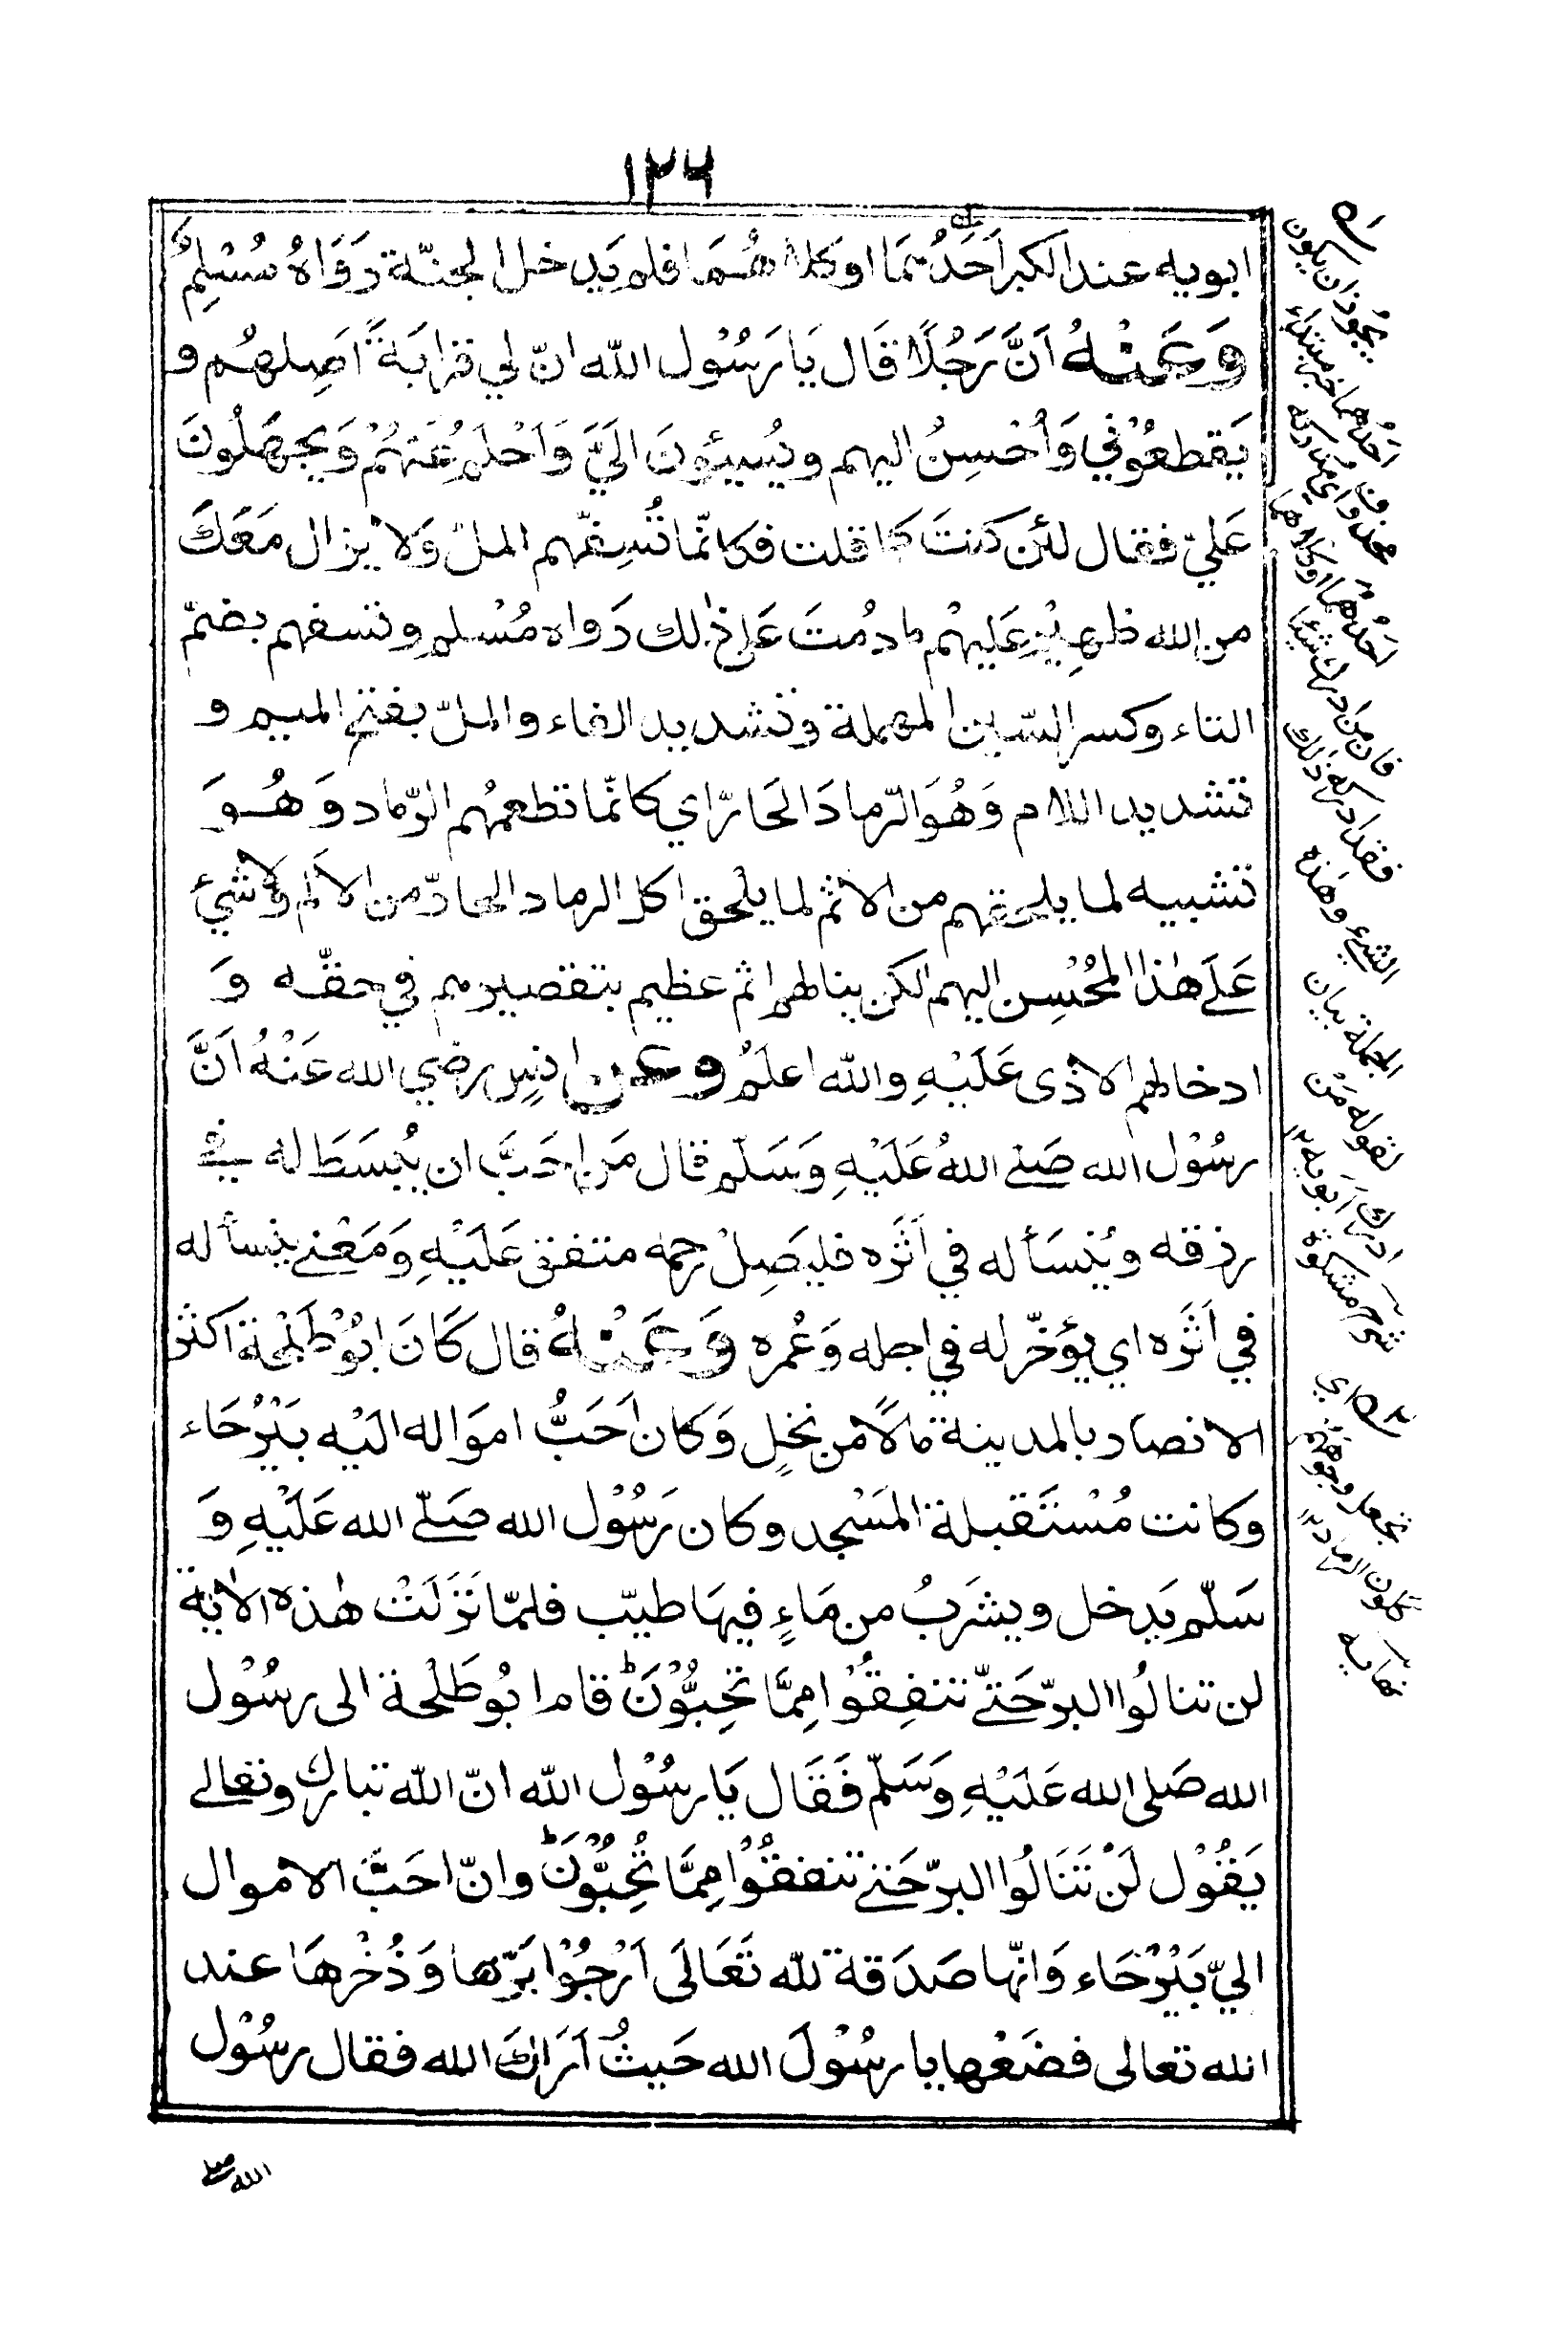 ١٢٦
ابويه عند الكبر اَحَدُهُمَا او كلاهُمَا فلم يَدخل الجنّة رَوَاهُ مُسْلِمٌ
وَعَنْهُ اَنَّ رَجُلًا قَال يَا رَسُوْل اللّه انّ لي قرابَةً اَصِلهُم و
يَقطعُوْني وَاُحْسِنُ اليهم ويُسيئونَ الَيَّ وَاَحْلَمُ عَنْهُمْ وَيجهَلُونَ
عَليّ فقال لئن كنتَ كما قلت فكانّما تُسِفّهم الملّ وَلا يزال مَعَكَ
من الله ظهِيْرٌ عَليهْم ما دُمتَ عَلى ذٰلك رَواه مُسْلم وتسفهم بضمّ
التاء وكسر السّين المهملة وتشديد الفاء والملّ بفتح الميم و
تشديد اللام وَهُوَ الرّمادَ الحَارّ اي كانّما تطعمهُم الرّماد وَهُوَ
تشبيه لما يلحقهم من الاثم لما يلحق اكل الرماد الحارّ من الاَلم ولا شيئ
عَلے هٰذا المُحْسِن اليهم لكن ينالهم اثم عظيم بتقصيرهم في حقّه وَ
ادخالهم الاذى عَلَيْهِ والله اعلَمُ وعن انسٍ رضي الله عَنْهُ اَنَّ
رسُوْل الله صَلے اللهُ عَلَيْهِ وَسَلّم قال مَن احَبَّ ان يُبسَطَ له في
رزقه ويُنسَأ له في اَثَره فليَصِلْ رحِمه متفق عَلَيْهِ وَمَعْنے ينسأ له
في اَثَره اي يؤخّر له في اجله وَعُمره وَعَنْهُ قال كَانَ ابُوْ طَلْحة اكثر
الانصار بالمدينة مَالًا من نخلٍ وَكان اَحَبُّ امَواله اليْه بَيْرُحَاء
وكانت مُسْتَقبلة المَسْجد وكان رَسُوْل الله صَلّے الله عَلَيْهِ وَ
سَلّم يَدخل ويشرَبُ من مَاءٍ فيهَا طيّب فلمّا نَزَلَتْ هٰذه الاٰية
لن تنالُوا البرّ حَتّے تنفِقُوْا مِمَّا تُحِبُّوْنَؕ قام ابُو طَلْحة الى رسُوْل
الله صَلى الله عَلَيْهِ وَسَلّم فَقَال يَا رسُوْل اللّه انّ اللّه تبارك وتعالے
يَقُوْل لَنْ تَنَالُوا البرّ حَتے تنفقُوْا مِمَّا تُحِبُّوْنَؕ وانّ احَبَّ الاموال
اليّ بَيْرُحَاء وَانّها صَدَقة للّه تَعَالَى اَرْجُوْا بَرّها وَذُخْرهَا عند
الله تعالى فضَعْها يا رسُوْلَ الله حَيثُ اَرَاكَ الله فقال رسُوْل
الله صلے
يجوز ان يكون
اَحَدُهما خبر مبتداء
اَحَدُهما او كلاهما
فان من ادرك شيئا
فقد ادركه ذلك
الشيء وهذه
الجملة بيان
لقوله مَنْ
ادرك ابويه
شرح مشكوة
اي
تجعل وجوههم
كلون الرماد
نهايه